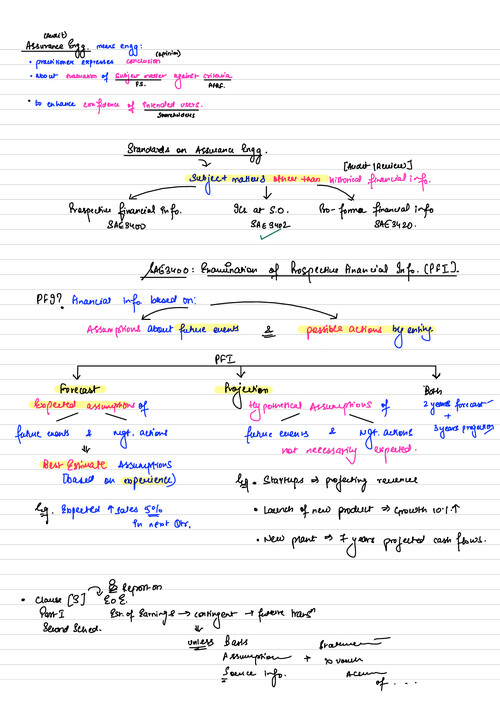 (audit)
Assurance Engg. means engg:
(opinion)
• practitioner expresses conclusion
• About evaluation of subject matter against criteria
F.S. AFRF.
• to enhance confidence of Intended users.
Shareholders
Standards on Assurance Engg.
[Audit/Review]
Subject matters other than historical financial info.
Prospective financial Info. ICs at S.O. Pro-forma financial info
SAE3400 SAE3402 SAE3420.
SAE3400: Examination of Prospective Financial Info. (PFI).
PFI? Financial info based on:
Assumptions about future events & possible actions by entity.
PFI
Forecast Projection Both
Expected assumptions of Hypothetical Assumptions of 2 years forecast
+
future events & mgt. actions future events & mgt. actions 3 years projection
not necessarily expected.
Best Estimate Assumptions
(based on experience) Eg. • Startups ⇒ projecting revenue
Eg. Expected ↑ sales 5% • Launch of new product ⇒ Growth 10% ↑
in next Qtr.
• New plant ⇒ 7 years projected cash flows.
Report on
• Clause [3] E.O.E.
Part I Est. of Earnings → contingent → future transn
Second Sched.
unless Basis
Assumption +
Source Info.
of ...